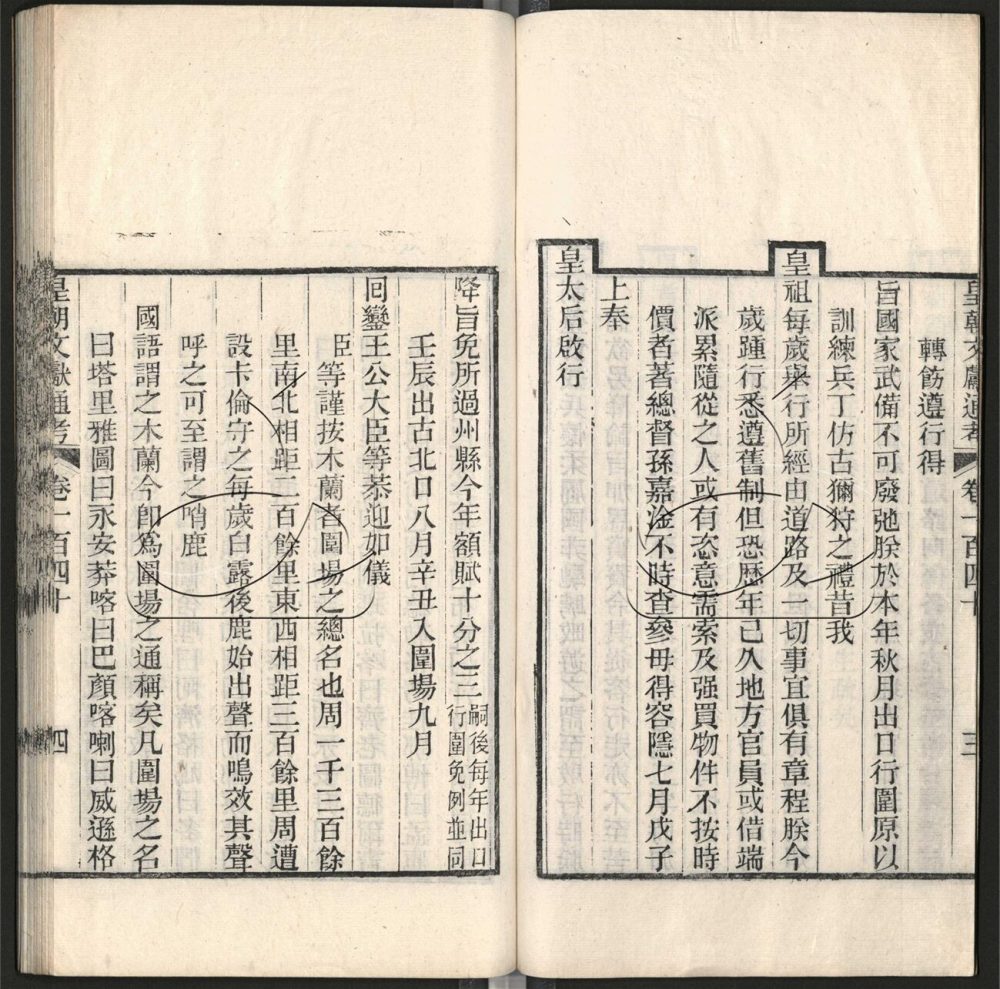 皇朝文獻通考 卷一百四十 三
轉飭遵行得
旨國家武備不可廢弛朕於本年秋月出口行圍原以
訓練兵丁仿古獮狩之禮昔我
皇祖每歲舉行所經由道路及一切事宜俱有章程朕今
歲踵行悉遵舊制但恐歷年已久地方官員或借端
派累隨從之人或有恣意需索及强買物件不按時
價者著總督孫嘉淦不時查參毋得容隱七月戊子
上奉
皇太后啟行
降旨免所過州縣今年額賦十分之三嗣後每年出口行圍免例並同
壬辰出古北口八月辛丑入圍場九月
回鑾王公大臣等恭迎如儀
臣等謹按木蘭者圍場之總名也周一千三百餘
里南北相距二百餘里東西相距三百餘里周遭
設卡倫守之每歲白露後鹿始出聲而鳴效其聲
呼之可至謂之哨鹿
國語謂之木蘭今卽爲圍場之通稱矣凡圍場之名
曰塔里雅圖曰永安莽喀曰巴顏喀喇曰威遜格
皇朝文獻通考 卷一百四十 四